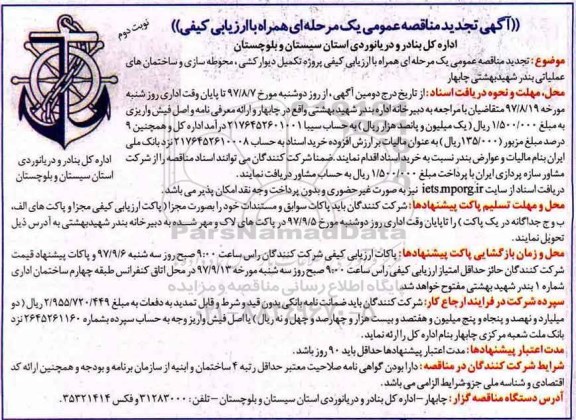 ((آگهی تجدید مناقصه عمومی یک مرحله ای همراه با ارزیابی کیفی))
نوبت دوم
اداره کل بنادر و دریانوردی استان سیستان و بلوچستان
موضوع: تجدید مناقصه عمومی یک مرحله ای همراه با ارزیابی کیفی پروژه تکمیل دیوار کشی، محوطه سازی و ساختمان های
عملیاتی بندر شهید بهشتی چابهار
محل، مهلت و نحوه دریافت اسناد: از تاریخ درج دومین آگهی، از روز دوشنبه مورخ ۹۷/۸/۷ تا پایان وقت اداری روز شنبه
مورخه ۹۷/۸/۱۹ متقاضیان با مراجعه به دبیرخانه اداره بندر شهید بهشتی واقع در چابهار و ارائه معرفی نامه و اصل فیش واریزی
به مبلغ ۱/۵۰۰/۰۰۰ ریال (یک میلیون و پانصد هزار ریال) به حساب سیبا ۲۱۷۶۴۵۲۶۰۱۰۰۱ درآمد اداره کل و همچنین ۹
درصد مبلغ مزبور (۱۳۵/۰۰۰ ریال) به عنوان مالیات بر ارزش افزوده خرید اسناد به حساب ۲۱۷۶۴۵۲۶۱۰۰۰۸ نزد بانک ملی
ایران بنام مالیات و عوارض بندر نسبت به خرید اسناد اقدام نمایند. ضمنا شرکت کنندگان می توانند اسناد مناقصه را از شرکت
مشاور سازه پردازی ایران با پرداخت مبلغ ۱/۵۰۰/۰۰۰ ریال به حساب مشاور دریافت نمایند.
دریافت اسناد از سایت iets.mporg.ir نیز به صورت غیر حضوری و بدون پرداخت وجه نقد امکان پذیر می باشد.
اداره کل بنادر و دریانوردی
استان سیستان و بلوچستان
محل و مهلت تسلیم پاکت پیشنهادها: شرکت کنندگان باید پاکات سوابق و مستندات خود را بصورت مجزا (پاکت ارزیابی کیفی مجزا و پاکات های الف،
ب و ج جداگانه در یک پاکت) را تا پایان وقت اداری روز دوشنبه مورخ ۹۷/۹/۵ در پاکت های لاک و مهر شده به دبیرخانه بندر شهید بهشتی به آدرس ذیل
تحویل نمایند.
محل و زمان بازگشایی پاکت پیشنهادها: پاکات ارزیابی کیفی شرکت کنندگان راس ساعت ۹:۰۰ صبح روز سه شنبه ۹۷/۹/۶ و پاکات پیشنهاد قیمت
شرکت کنندگان حائز حداقل امتیاز ارزیابی کیفی راس ساعت ۹:۰۰ صبح روز سه شنبه مورخه ۹۷/۹/۱۳ در محل اتاق کنفرانس طبقه چهارم ساختمان اداری
شماره ۱ بندر شهید بهشتی مفتوح خواهد شد.
سپرده شرکت در فرایند ارجاع کار: شرکت کنندگان باید ضمانت نامه بانکی بدون قید و شرط و قابل تمدید به دفعات به مبلغ ۲/۹۵۵/۷۲۰/۴۴۹ ریال (دو
میلیارد و نهصد و پنجاه و پنج میلیون و هفتصد و بیست هزار و چهارصد و چهل و نه ریال) یا اصل فیش واریز وجه به حساب سپرده بشماره ۲۶۴۵۲۶۱۱۶۰ نزد
بانک ملت شعبه مرکزی چابهار بنام اداره کل را ارائه نماید.
مدت اعتبار پیشنهادها: مدت اعتبار پیشنهادها حداقل باید ۹۰ روز باشد.
شرایط شرکت کنندگان در مناقصه: دارا بودن گواهی نامه صلاحیت معتبر حداقل رتبه ۴ ساختمان و ابنیه از سازمان برنامه و بودجه و همچنین ارائه کد
اقتصادی و شناسه ملی جزو شرایط الزامی می باشد.
آدرس دستگاه مناقصه گزار: چابهار - اداره کل بنادر و دریانوردی استان سیستان و بلوچستان - تلفن: ۳۱۲۸۳۰۰۰ و فکس ۳۵۳۲۱۴۱۴.
ParsNamadData
پایگاه اطلاع رسانی مناقصه و مزایده